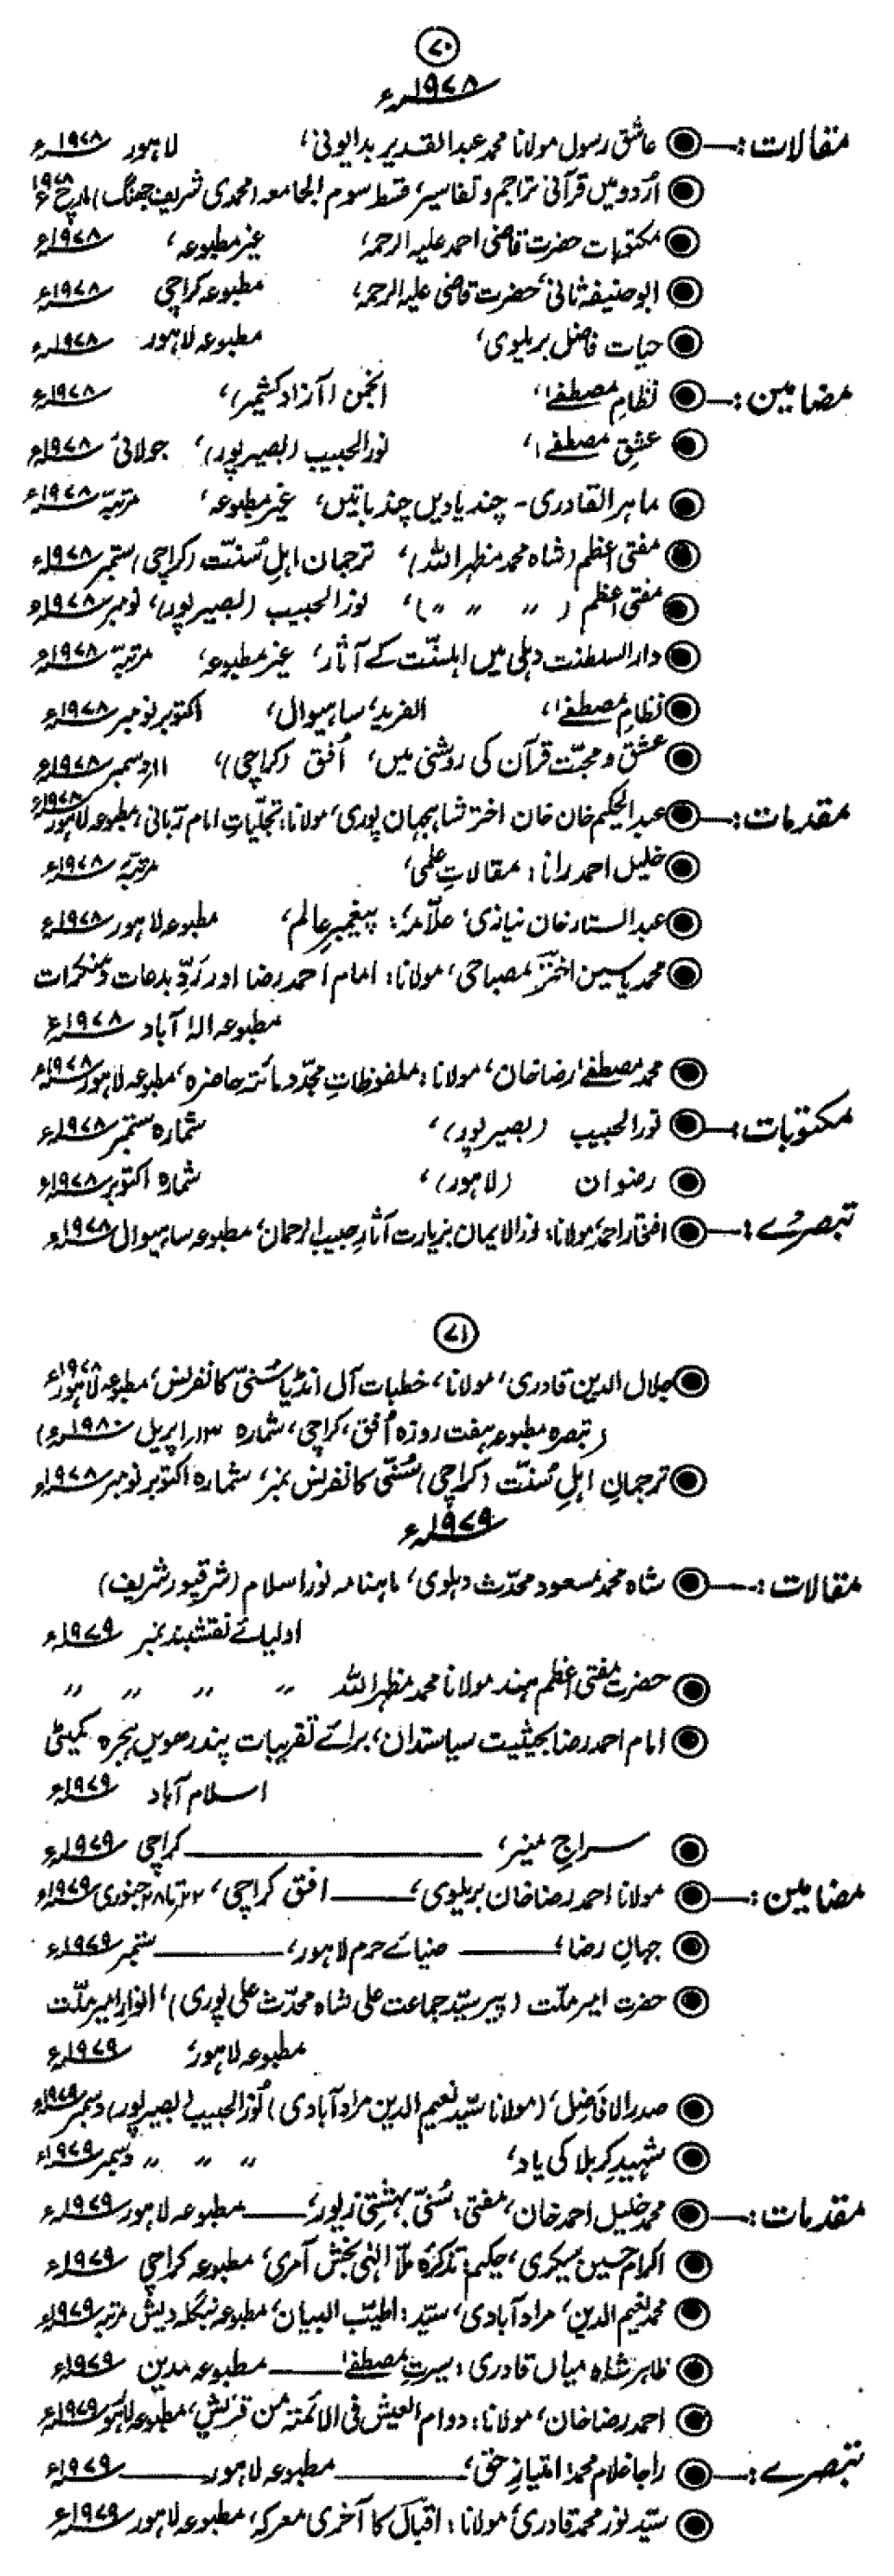 ۷۰
۱۹۷۸ء
مقالات:— عاشق رسول مولانا محمد عبدالقدیر بدایونی، لاہور ۱۹۷۸ء
اُردو میں قرآنی تراجم و تفاسیر، قسط سوم الجامعہ (محمدی شریف جھنگ) مارچ ۱۹۷۸ء
مکتوبات حضرت قاضی احمد علیہ الرحمہ، غیر مطبوعہ، ۱۹۷۸ء
ابوحنیفہ ثانی، حضرت قاضی علیہ الرحمہ، مطبوعہ کراچی ۱۹۷۸ء
حیات فاضل بریلوی، مطبوعہ لاہور ۱۹۷۸ء
مضامین:— نظامِ مصطفےٰ، انجمن (آزاد کشمیر)، ۱۹۷۸ء
عشقِ مصطفےٰ، نورالحبیب (بصیرپور)، جولائی ۱۹۷۸ء
ماہر القادری - چند یادیں چند باتیں، غیر مطبوعہ، مرتبہ ۱۹۷۸ء
مفتی اعظم (شاہ محمد مظہر اللہ)، ترجمان اہلِ سُنّت (کراچی) ستمبر ۱۹۷۸ء
مفتی اعظم ( " " " )، نورالحبیب (بصیرپور)، نومبر ۱۹۷۸ء
دارالسلطنت دہلی میں اہلسنّت کے آثار، غیر مطبوعہ، مرتبہ ۱۹۷۸ء
نظامِ مصطفےٰ، الفرید، ساہیوال، اکتوبر نومبر ۱۹۷۸ء
عشق و محبّت قرآن کی روشنی میں، اُفق (کراچی)، ۱۱ر دسمبر ۱۹۷۸ء
مقدمات:— عبدالحکیم خان خان اختر شاہجہان پوری، مولانا: تجلّیاتِ امام ربّانی، مطبوعہ لاہور ۱۹۷۸ء
خلیل احمد رانا: مقالاتِ علمی، مرتبہ ۱۹۷۸ء
عبدالستار خان نیازی، علّامہ: پیغمبرِ عالم، مطبوعہ لاہور ۱۹۷۸ء
محمد یاسین اختر مصباحی، مولانا: امام احمد رضا اور رَدِّ بدعات و منکرات
مطبوعہ الہ آباد ۱۹۷۸ء
محمد مصطفےٰ رضا خان، مولانا: ملفوظاتِ مجدّد مائتہ حاضرہ، مطبوعہ لاہور ۱۹۷۸ء
مکتوبات:— نورالحبیب (بصیرپور)، شمارہ ستمبر ۱۹۷۸ء
رضوان (لاہور)، شمارہ اکتوبر ۱۹۷۸ء
تبصرے:— افتخار احمد، مولانا: نورالایمان بزیارت آثارِ حبیب الرحمان، مطبوعہ ساہیوال ۱۹۷۸ء
۷۱
جلال الدین قادری، مولانا، خطبات آل انڈیا سُنّی کانفرنس، مطبوعہ لاہور ۱۹۷۸ء
(تبصرہ مطبوعہ ہفت روزہ اُفق، کراچی، شمارہ ۱۳ر اپریل ۱۹۸۰ء)
ترجمانِ اہلِ سُنّت (کراچی) سُنّی کانفرنس نمبر، شمارہ اکتوبر نومبر ۱۹۷۸ء
۱۹۷۹ء
مقالات:— شاہ محمد مسعود محدّث دہلوی، ماہنامہ نورِ اسلام (شرقپور شریف)
اولیائے نقشبند نمبر ۱۹۷۹ء
حضرت مفتی اعظم ہند مولانا محمد مظہر اللہ " " " "
امام احمد رضا بحیثیت سیاستدان، برائے تقریبات پندرھویں ہجرہ کمیٹی
اسلام آباد ۱۹۷۹ء
سراجِ منیر، — کراچی ۱۹۷۹ء
مضامین:— مولانا احمد رضا خان بریلوی، — افق کراچی، ۲۲ تا ۲۸ جنوری ۱۹۷۹ء
جہانِ رضا، — ضیائے حرم لاہور، — ستمبر ۱۹۷۹ء
حضرت امیر ملّت (پیر سیّد جماعت علی شاہ محدّث علی پوری)، انوارِ امیر ملّت
مطبوعہ لاہور، ۱۹۷۹ء
صدرالافاضل، (مولانا سیّد نعیم الدین مراد آبادی) نورالحبیب (بصیرپور) دسمبر ۱۹۷۹ء
شہیدِ کربلا کی یاد، " " " دسمبر ۱۹۷۹ء
مقدمات:— محمد خلیل احمد خان، مفتی: سُنّی بہشتی زیور، — مطبوعہ لاہور ۱۹۷۹ء
اکرام حسین سیکری، حکیم: تذکرہ ملّا الٰہی بخش آمری، مطبوعہ کراچی ۱۹۷۹ء
محمد نعیم الدین، مراد آبادی، سیّد: اطیب البیان، مطبوعہ بنگلہ دیش مرتبہ ۱۹۷۹ء
ظاہر شاہ میاں قادری: سیرتِ مصطفےٰ — مطبوعہ مدین ۱۹۷۹ء
احمد رضا خان، مولانا: دوام العیش فی الائمۃ من قریش، مطبوعہ لاہور ۱۹۷۹ء
تبصرے:— راجا غلام محمد: امتیازِ حق، — مطبوعہ لاہور — ۱۹۷۹ء
سیّد نور محمد قادری، مولانا: اقبال کا آخری معرکہ، مطبوعہ لاہور ۱۹۷۹ء